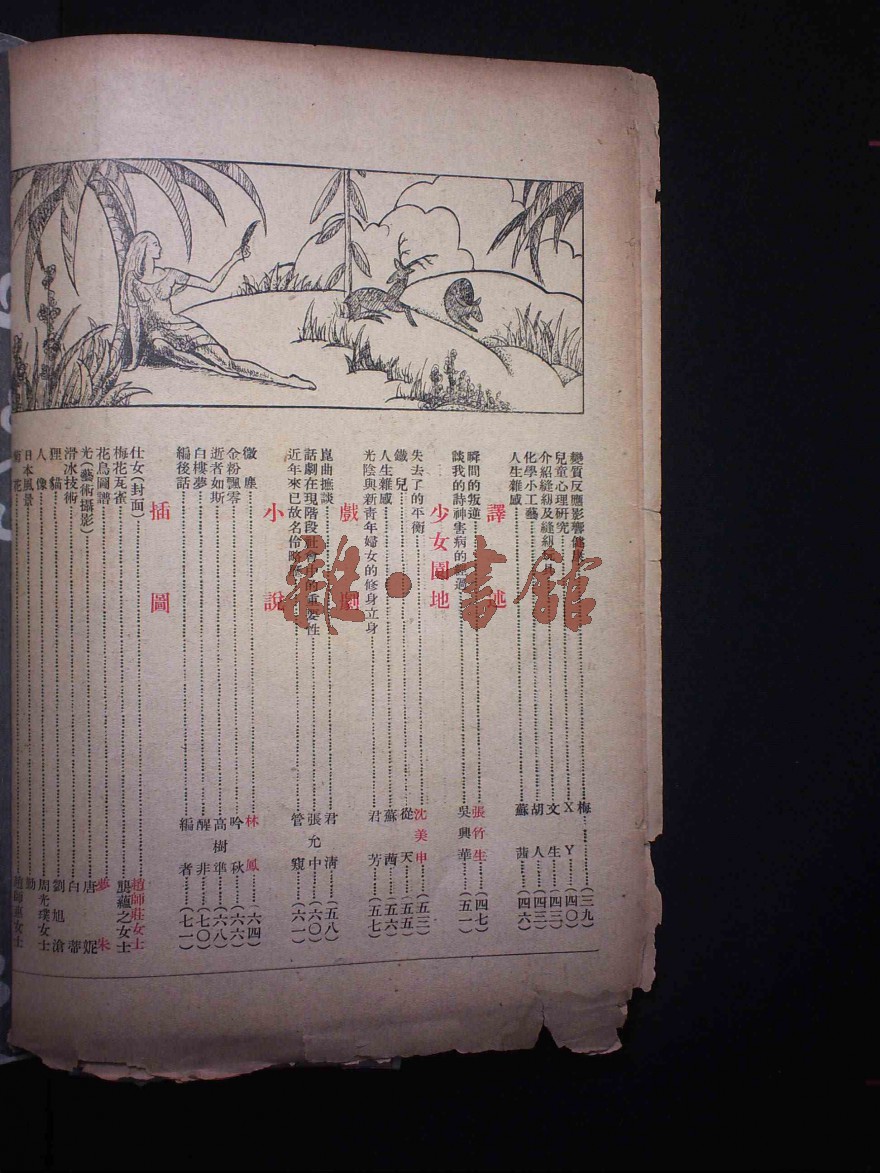 變質反應影響健康 梅 (三九)
兒童心理研究 X Y (四〇)
介紹縫紉及縫紉 文生 (四三)
化學小工藝 胡人 (四三)
人生雜感 蘇茜 (四六)
譯述
瞬間的叛逆 張竹生 (四七)
談我的詩神害病的經過 吳興華 (五一)
少女園地
失去了的平衡 沈美申 (五三)
鐵兒 從天 (五五)
人生雜感 蘇茜 (五六)
光陰與新青年婦女的修身立身 君芳 (五七)
戲劇
崑曲摭談 君清 (五八)
話劇在現階段社會中的重要性 張允中 (六〇)
近年來已故名伶略 管窺 (六一)
小說
微塵 林鳳 (六四)
金粉飄零 吟秋 (六六)
逝者如斯 高樹準 (六八)
白樓夢 醒非 (七〇)
編後話 編者 (七一)
插圖
仕女(封面) 趙師莊女士
梅花瓦雀 龔蘊之女士
花鳥圖譜 夢朱
光(藝術攝影) 唐妮
滑冰技術 白蒂
狸貓 劉旭滄
人像 周光璞女士
日本風景 勤
菊花 女士
雜·書館